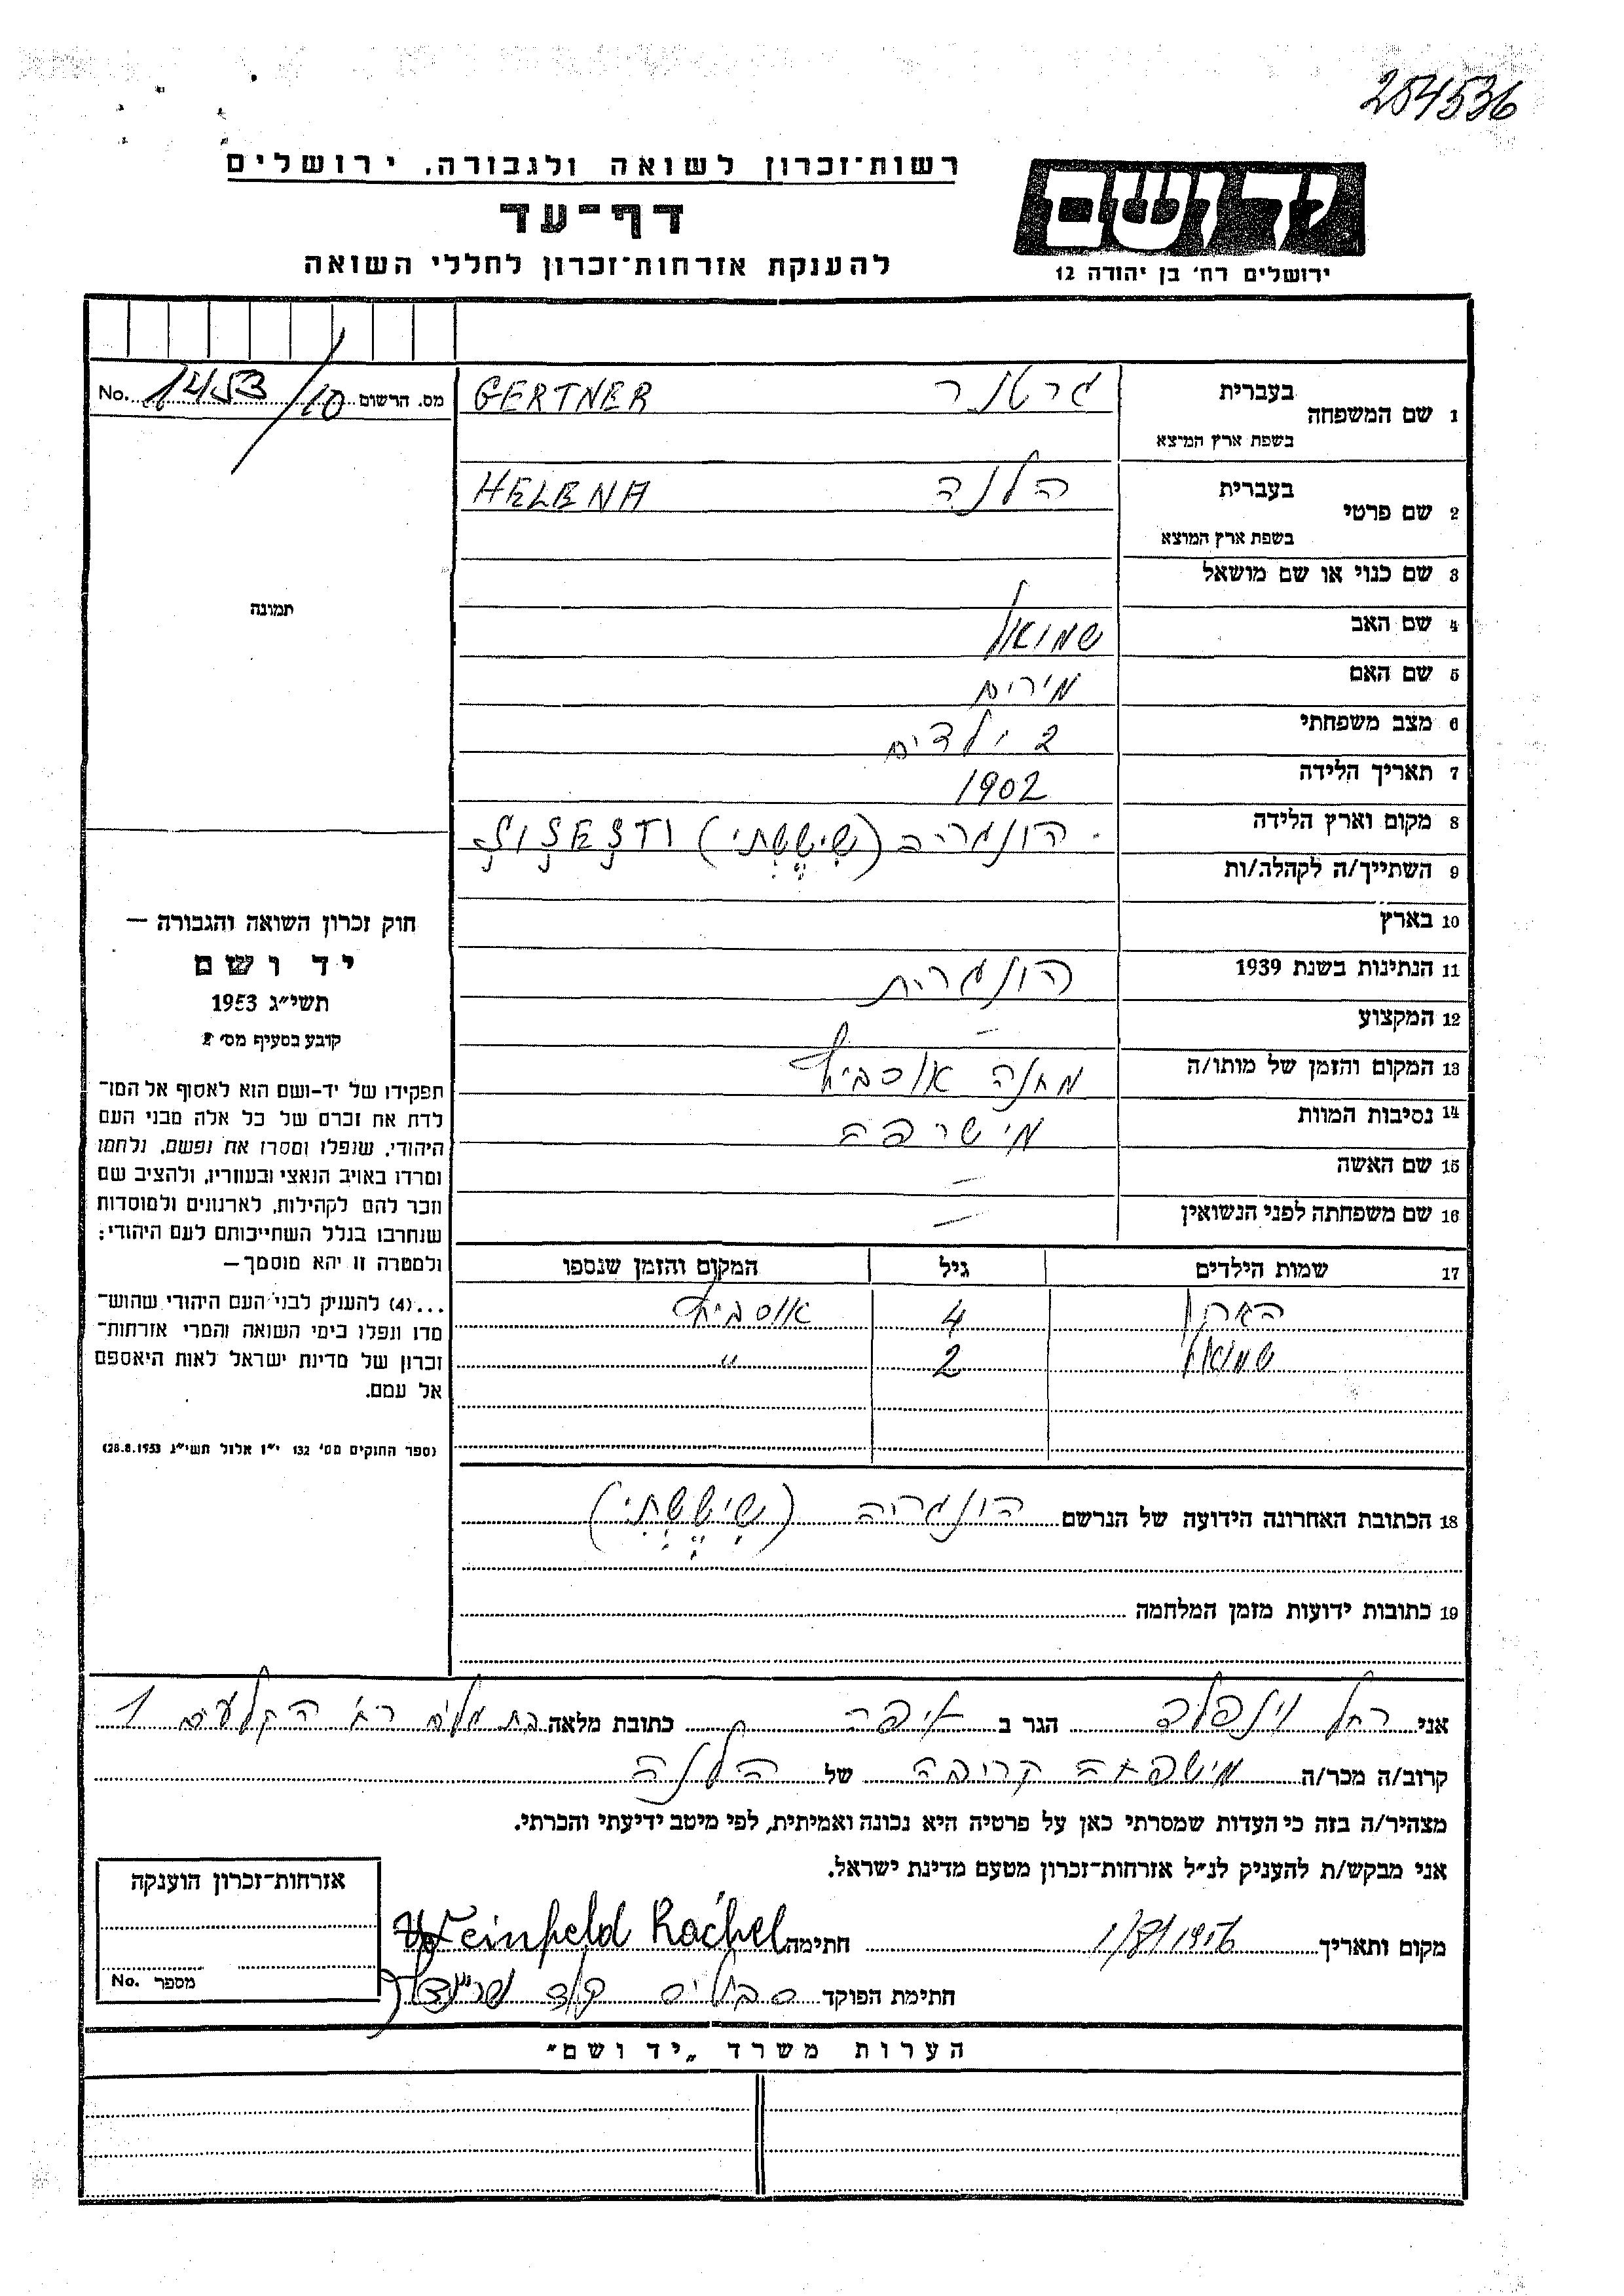 254536
רשות־זכרון לשואה ולגבורה, ירושלים
דף־עד
להענקת אזרחות־זכרון לחללי השואה
יד ושם
ירושלים רח' בן יהודה 12
מס. הרשום 1453/10 No.
1 שם המשפחה בעברית גרטנר GERTNER
בשפת ארץ המוצא
2 שם פרטי בעברית הלנה HELENA
בשפת ארץ המוצא
3 שם כנוי או שם מושאל
4 שם האב שמואל
5 שם האם מירים
6 מצב משפחתי 2 ילדים
7 תאריך הלידה 1902
8 מקום וארץ הלידה הונגריה (שיששתי) ŞIŞEŞTI
9 השתייך/ה לקהלה/ות
10 בארץ
11 הנתינות בשנת 1939 הונגרית
12 המקצוע —
13 המקום והזמן של מותו/ה מחנה אוסביץ
14 נסיבות המוות מישרפה
15 שם האשה —
16 שם משפחתה לפני הנשואין —
17 שמות הילדים גיל המקום והזמן שנספו
4 אוסביץ
שמואל 2 "
18 הכתובת האחרונה הידועה של הנרשם הונגריה (שיששתי)
19 כתובות ידועות מזמן המלחמה
תמונה
חוק זכרון השואה והגבורה —
יד ושם
תשי"ג 1953
קובע בסעיף מס' 2
תפקידו של יד-ושם הוא לאסוף אל המו־
לדת את זכרם של כל אלה מבני העם
היהודי, שנפלו ומסרו את נפשם, נלחמו
ומרדו באויב הנאצי ובעוזריו, ולהציב שם
וזכר להם לקהילות, לארגונים ולמוסדות
שנחרבו בגלל השתייכותם לעם היהודי;
ולמטרה זו יהא מוסמך —
...(4) להעניק לבני העם היהודי שהוש־
מדו ונפלו בימי השואה והמרי אזרחות־
זכרון של מדינת ישראל לאות היאספם
אל עמם.
(ספר החוקים מס' 132 י"ז אלול תשי"ג 28.8.1953)
אני רחל וינפלד הגר ב כתובת מלאה בת גלים רח הקלעים 1
קרוב/ה מכר/ה מישפחה קרובה של הלנה
מצהיר/ה בזה כי העדות שמסרתי כאן על פרטיה היא נכונה ואמיתית, לפי מיטב ידיעתי והכרתי.
אני מבקש/ת להעניק לנ"ל אזרחות־זכרון מטעם מדינת ישראל.
מקום ותאריך 1/8/1956 חתימה Weinfeld Rachel
חתימת הפוקד
אזרחות־זכרון הוענקה
מספר No.
הערות משרד „יד ושם"